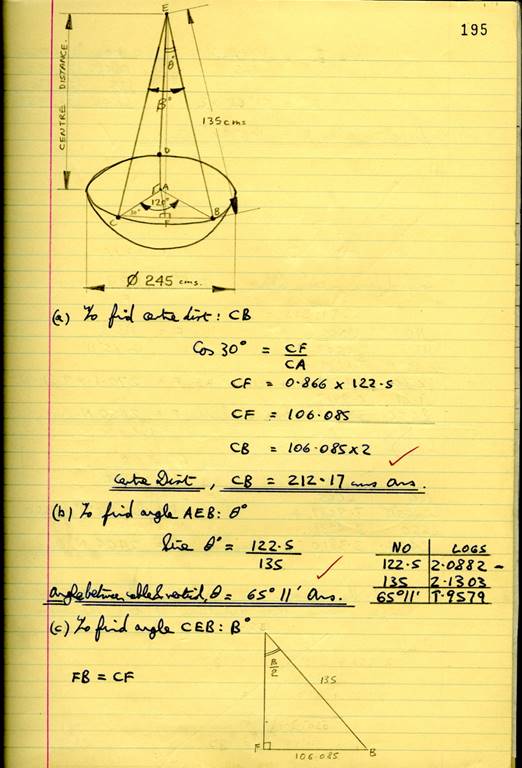 195
E
θ°
β°
CENTRE DISTANCE.
135 cms
D
A
120°
30°
C
F
B
Ø 245 cms.
(a) To find centre dist: CB
Cos 30° = CF
CA
CF = 0.866 x 122.5
CF = 106.085
CB = 106.085 x 2
Centre Dist, CB = 212.17 cms Ans.
(b) To find angle AEB: θ°
Sine θ° = 122.5
135
NO LOGS
122.5 2.0882 -
135 2.1303
65°11' 1̄.9579
Angle between cable & vertical, θ = 65° 11' Ans.
(c) To find angle CEB: B°
FB = CF
B
2
135
F
106.085
B